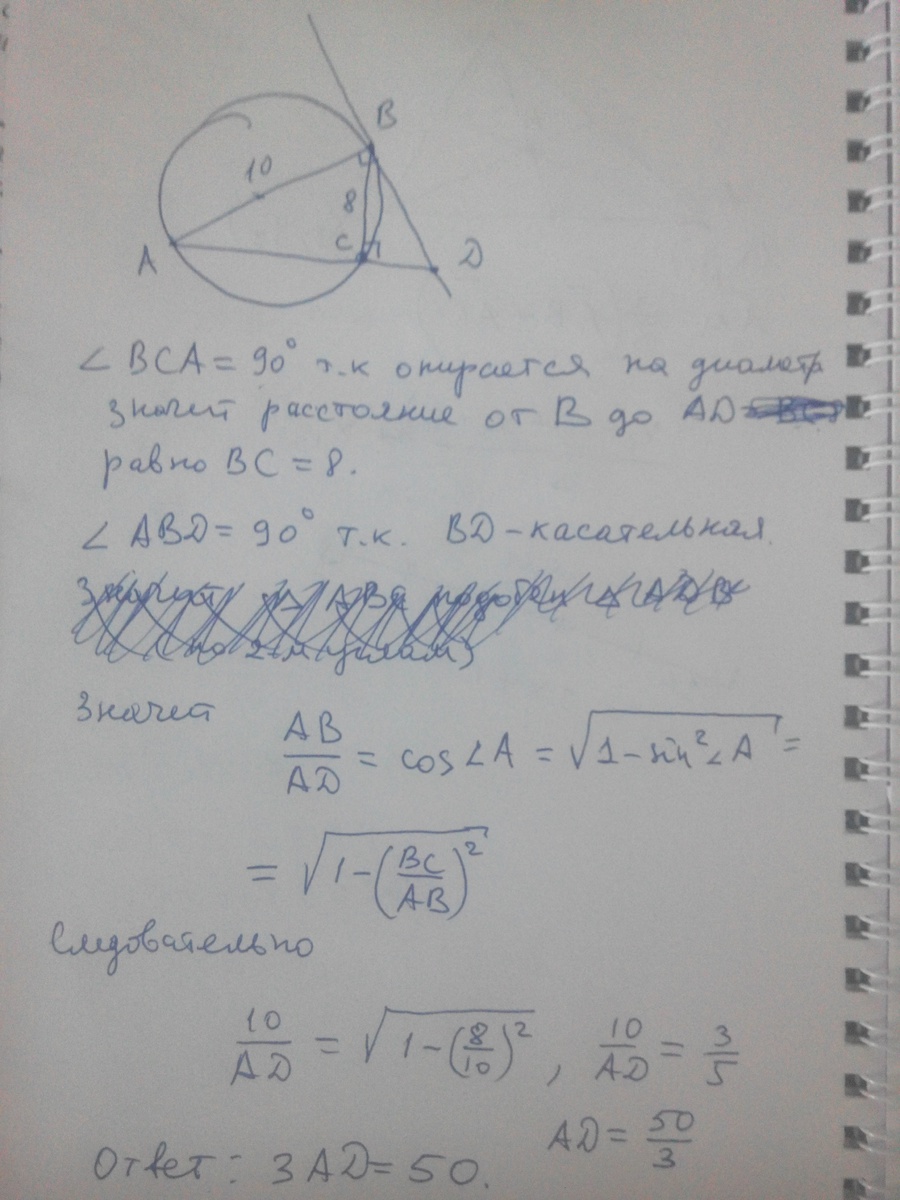 B
10
8
C
A
D
∠ BCA = 90° т.к опирается на диаметр
значит расстояние от B до AD
равно BC = 8.
∠ ABD = 90° т.к. BD - касательная.
Значит
AB/AD = cos∠A = √(1 - sin²∠A) =
= √(1 - (BC/AB)²)
Следовательно
10/AD = √(1 - (8/10)²) , 10/AD = 3/5
AD = 50/3
Ответ: 3AD = 50.